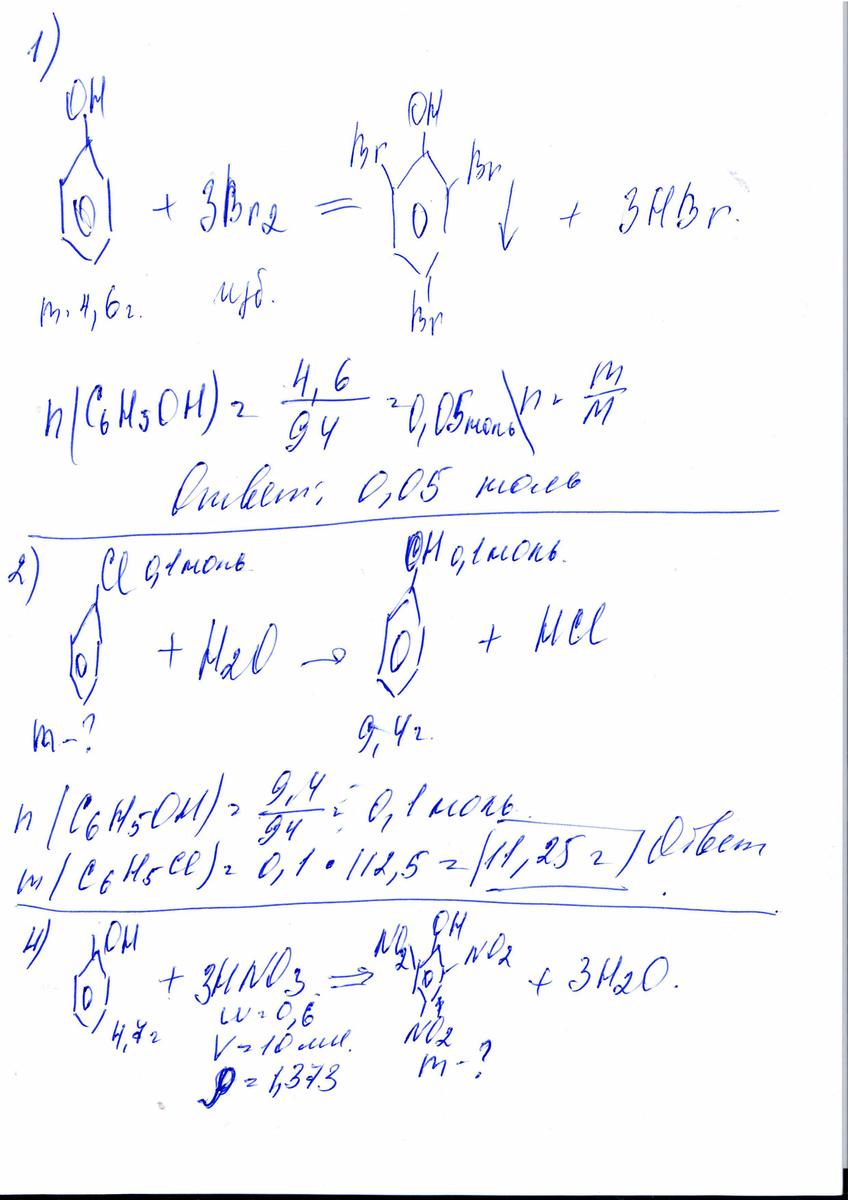 1)
OH
OH
Br
Br
+ 3Br2 =
↓ + 3HBr.
m=4,6г.
изб.
Br
n(C6H5OH) = 4,6/94 = 0,05моль \ n = m/M
Ответ: 0,05 моль
2)
Cl 0,1моль.
OH 0,1моль.
+ H2O →
+ HCl
m-?
9,4г.
n(C6H5OH) = 9,4/94 = 0,1моль.
m(C6H5Cl) = 0,1 • 112,5 = (11,25г) Ответ.
4)
OH
NO2
OH
NO2
+ 3HNO3 ⇒
+ 3H2O.
4,7г
w=0,6
NO2
V=10мл.
m-?
ρ=1,373